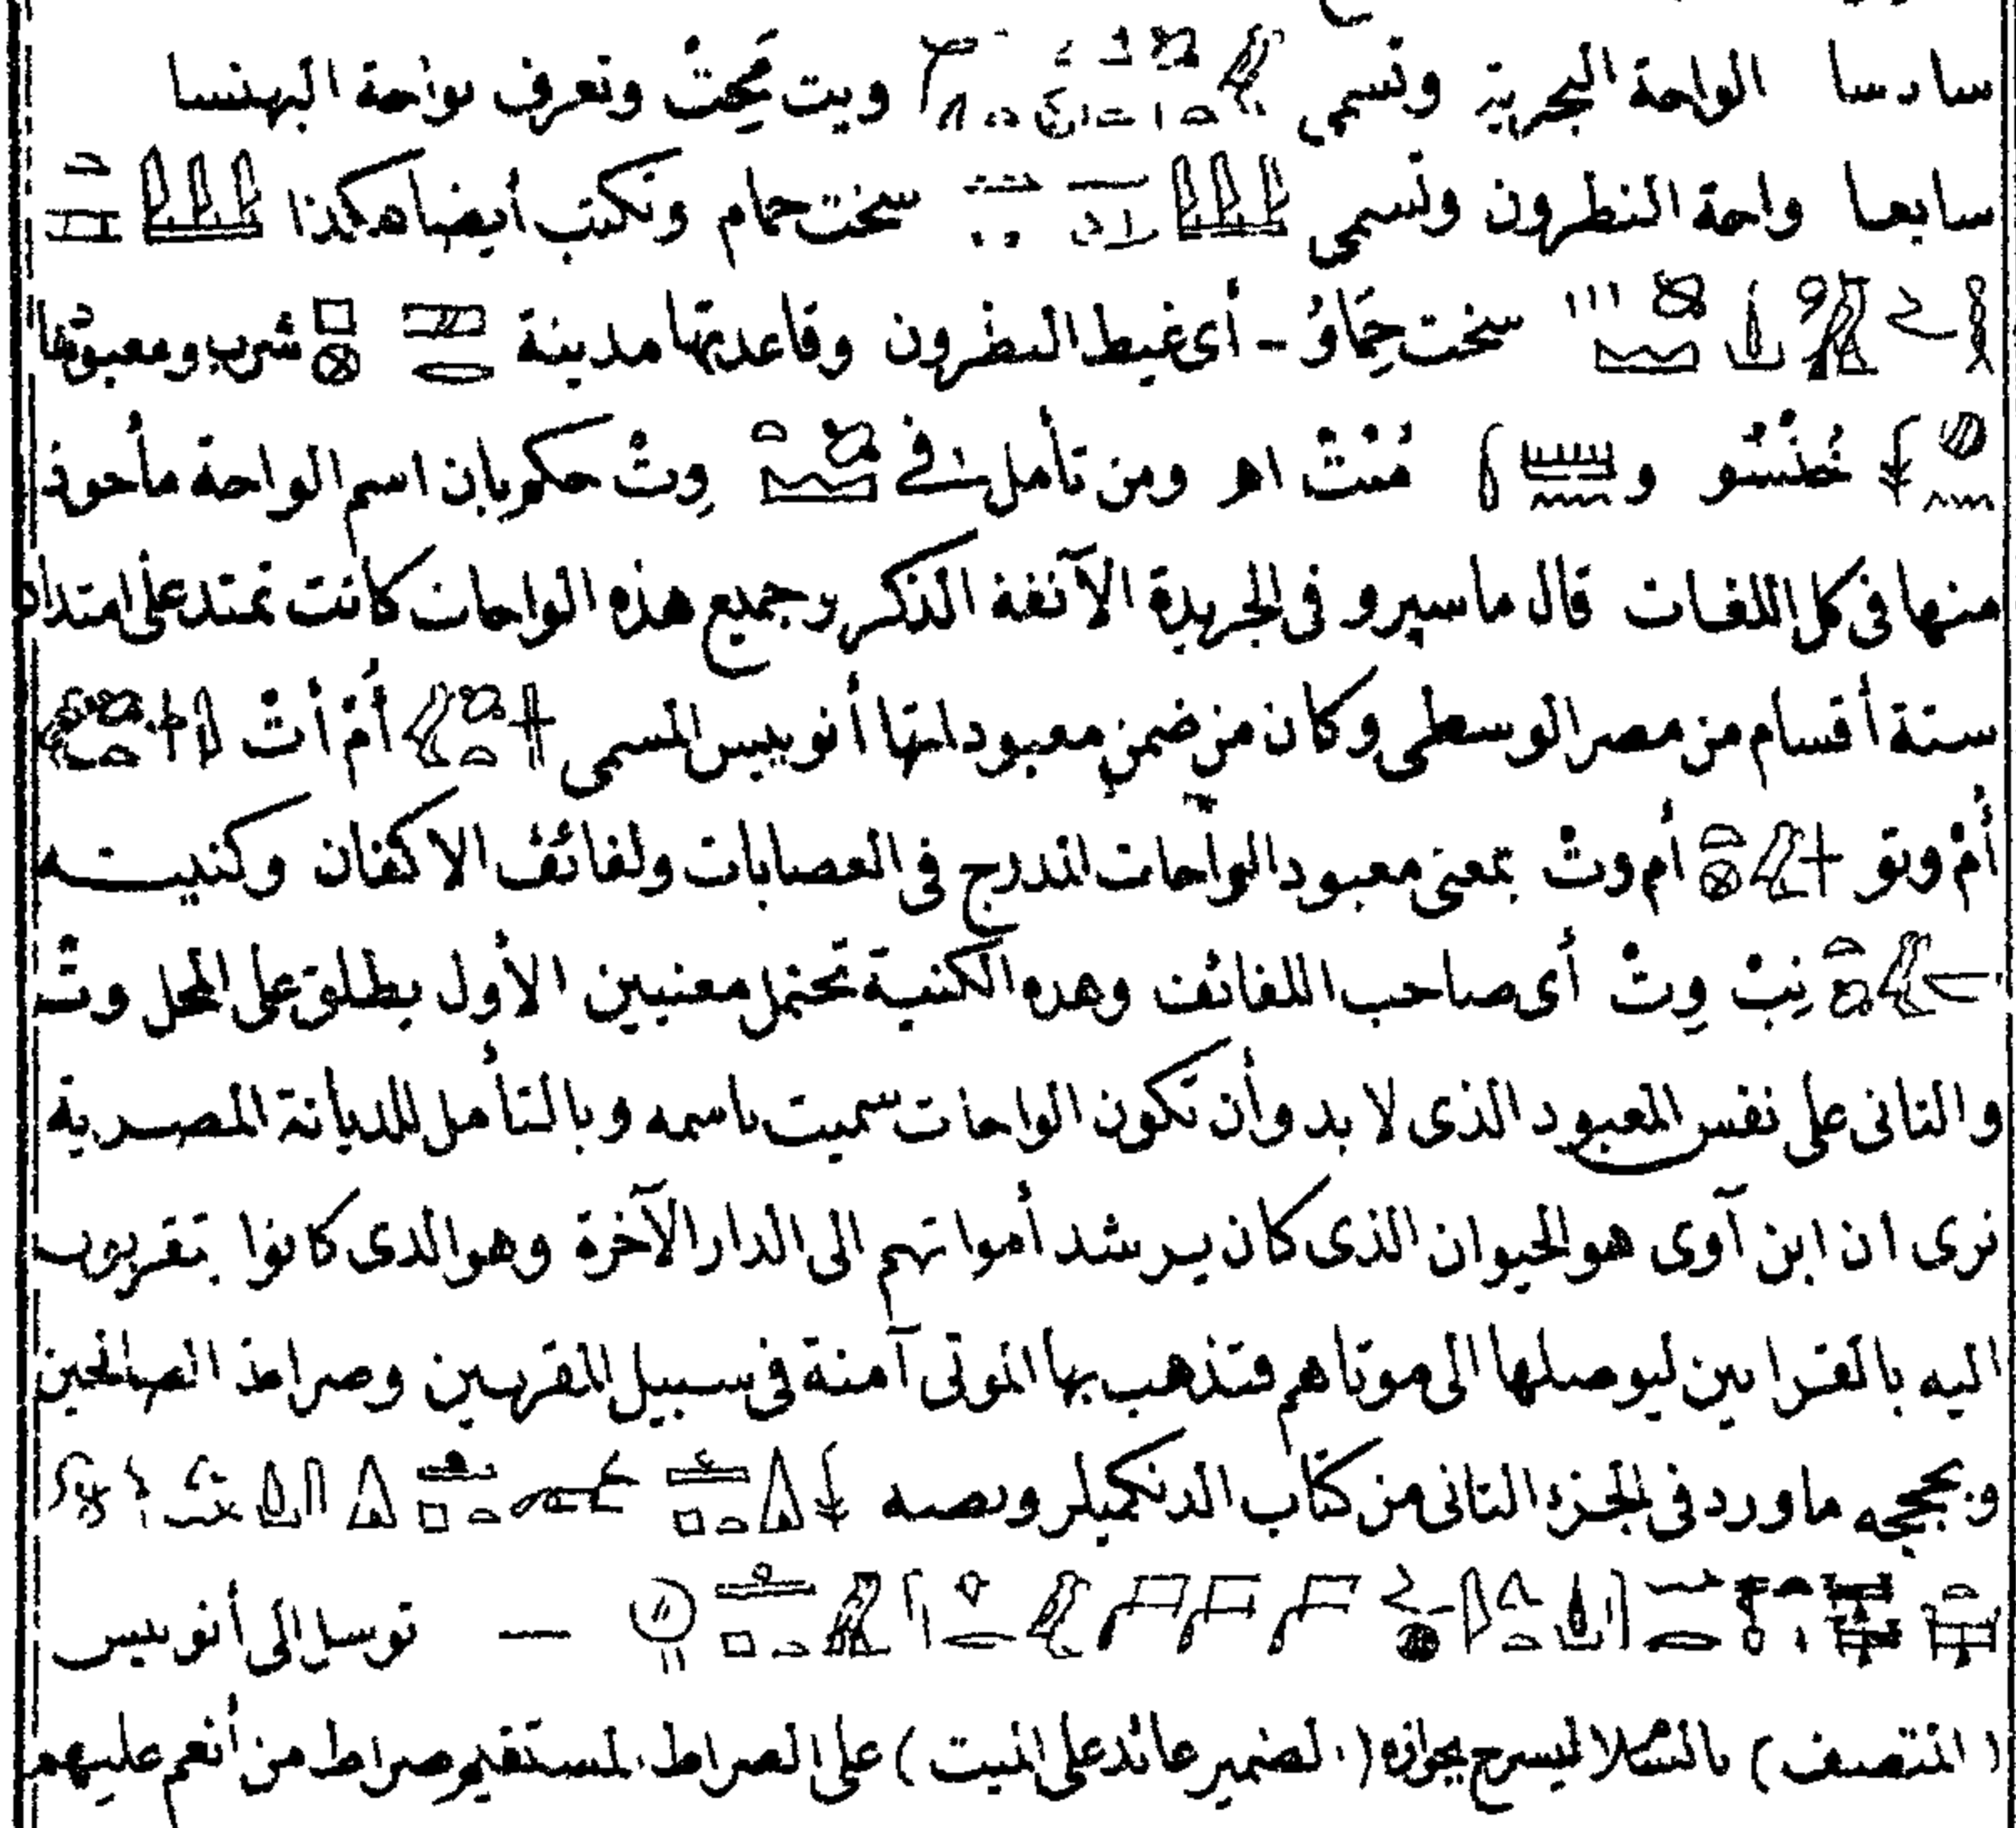 سادسا الواحة البحرية وتسمى ويت مَحِتْ وتعرف بواحة البهنسا
سابعا واحة النطرون وتسمى سخت حمام وتكتب أيضا هكذا
سخت حِمَاوُ - أى غيط النطرون وقاعدتها مدينة شرب ومعبودها
خُنْسُو و مُنْتْ اهـ ومن تأمل فى وِتْ حكم بان اسم الواحة مأخوذ
منها فى كل اللغات قال ماسپرو فى الجريدة الآنفة الذكر وجميع هذه الواحات كانت تمتد على امتداد
ستة أقسام من مصر الوسطى وكان من ضمن معبوداتها أنوبيس المسمى أُمْ أتْ
أُمْ وتو أم وتْ بمعنى معبود الواحات المندرج فى العصابات ولفائف الاكفان وكنيته
نِبْ وِتْ أى صاحب اللفائف وهذه الكنية تحتمل معنيين الأول يطلق على المحل وتْ
والثانى على نفس المعبود الذى لا بد وأن تكون الواحات سميت باسمه وبالتأمل للديانة المصرية
نرى ان ابن آوى هو الحيوان الذى كان يرشد أمواتهم الى الدار الآخرة وهو الذى كانوا يتقربون
اليه بالقرابين ليوصلها الى موتاهم فتذهب بها الموتى آمنة فى سبيل المقربين وصراط الصالحين
ما ورد فى الجزء الثانى من كتاب الدنكميلر ونصه
— توسل الى أنوبيس
(المتصف) ليسرح بجوازه (الضمير عائد على الميت) على الصراط المستقيم صراط من أنعم عليهم